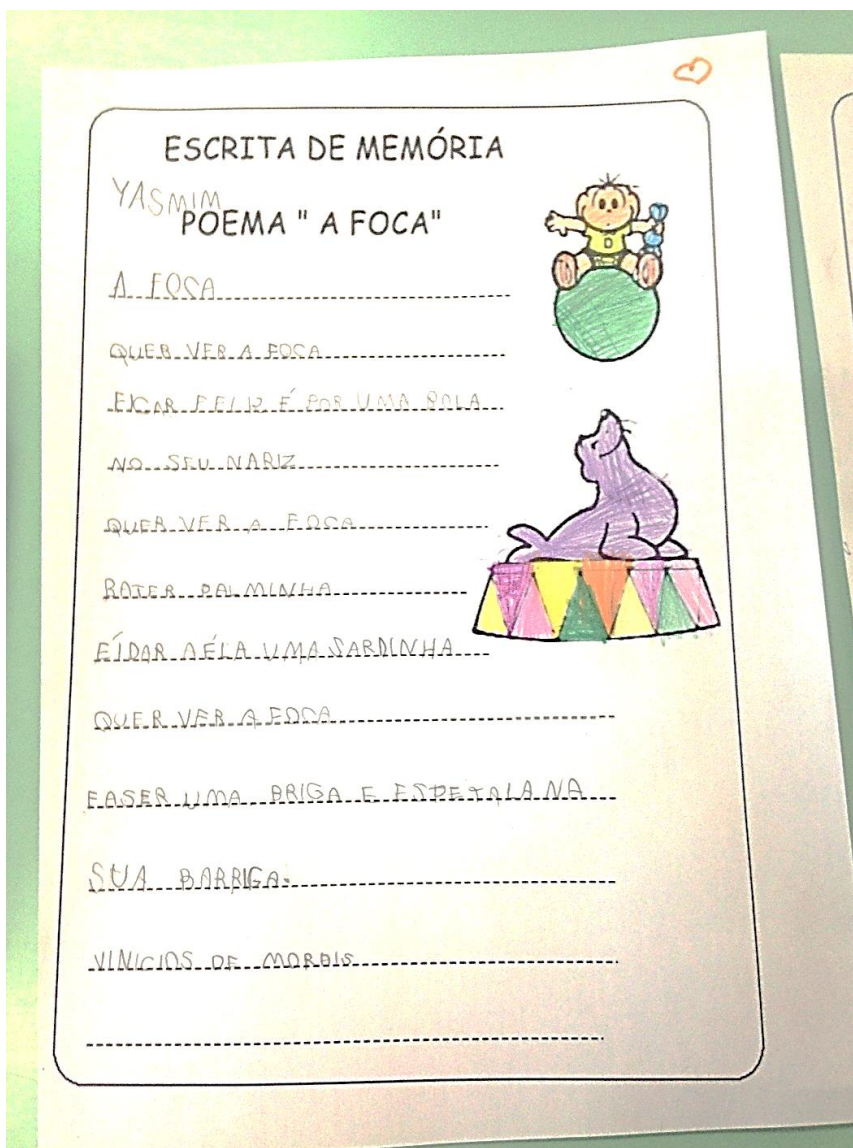 ESCRITA DE MEMÓRIA
YASMIM
POEMA " A FOCA"
A FOCA
QUER VER A FOCA
FICAR FELIZ É POR UMA BOLA
NO SEU NARIZ
QUER VER A FOCA
BATER PALMINHA
EÍDAR AÉLA UMA SARDINHA
QUER VER A FOCA
FASER UMA BRIGA E ESPETALA NA
SUA BARRIGA.
VINICIOS DE MORAIS
D